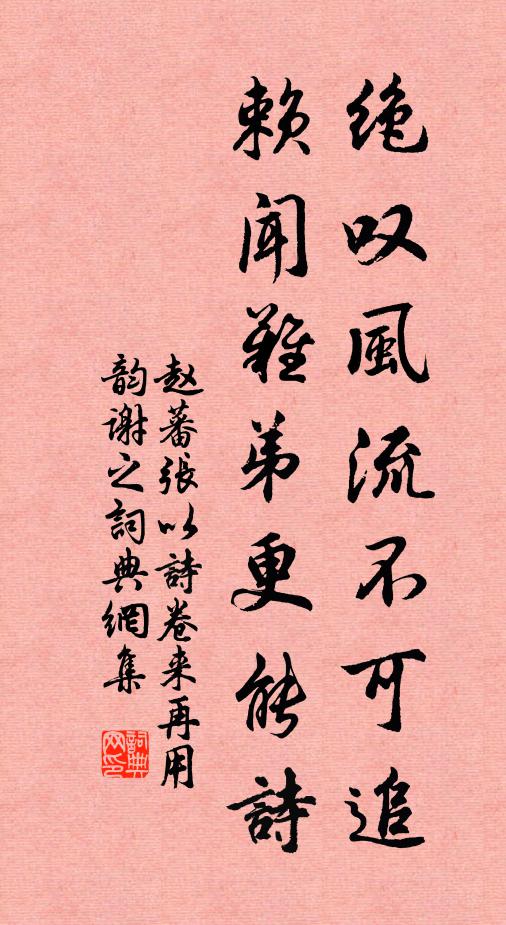 绝叹風流不可追
赖闻難弟更能詩
赵蕃張以詩卷来再用
韵谢之詞典網集
詞典
网印